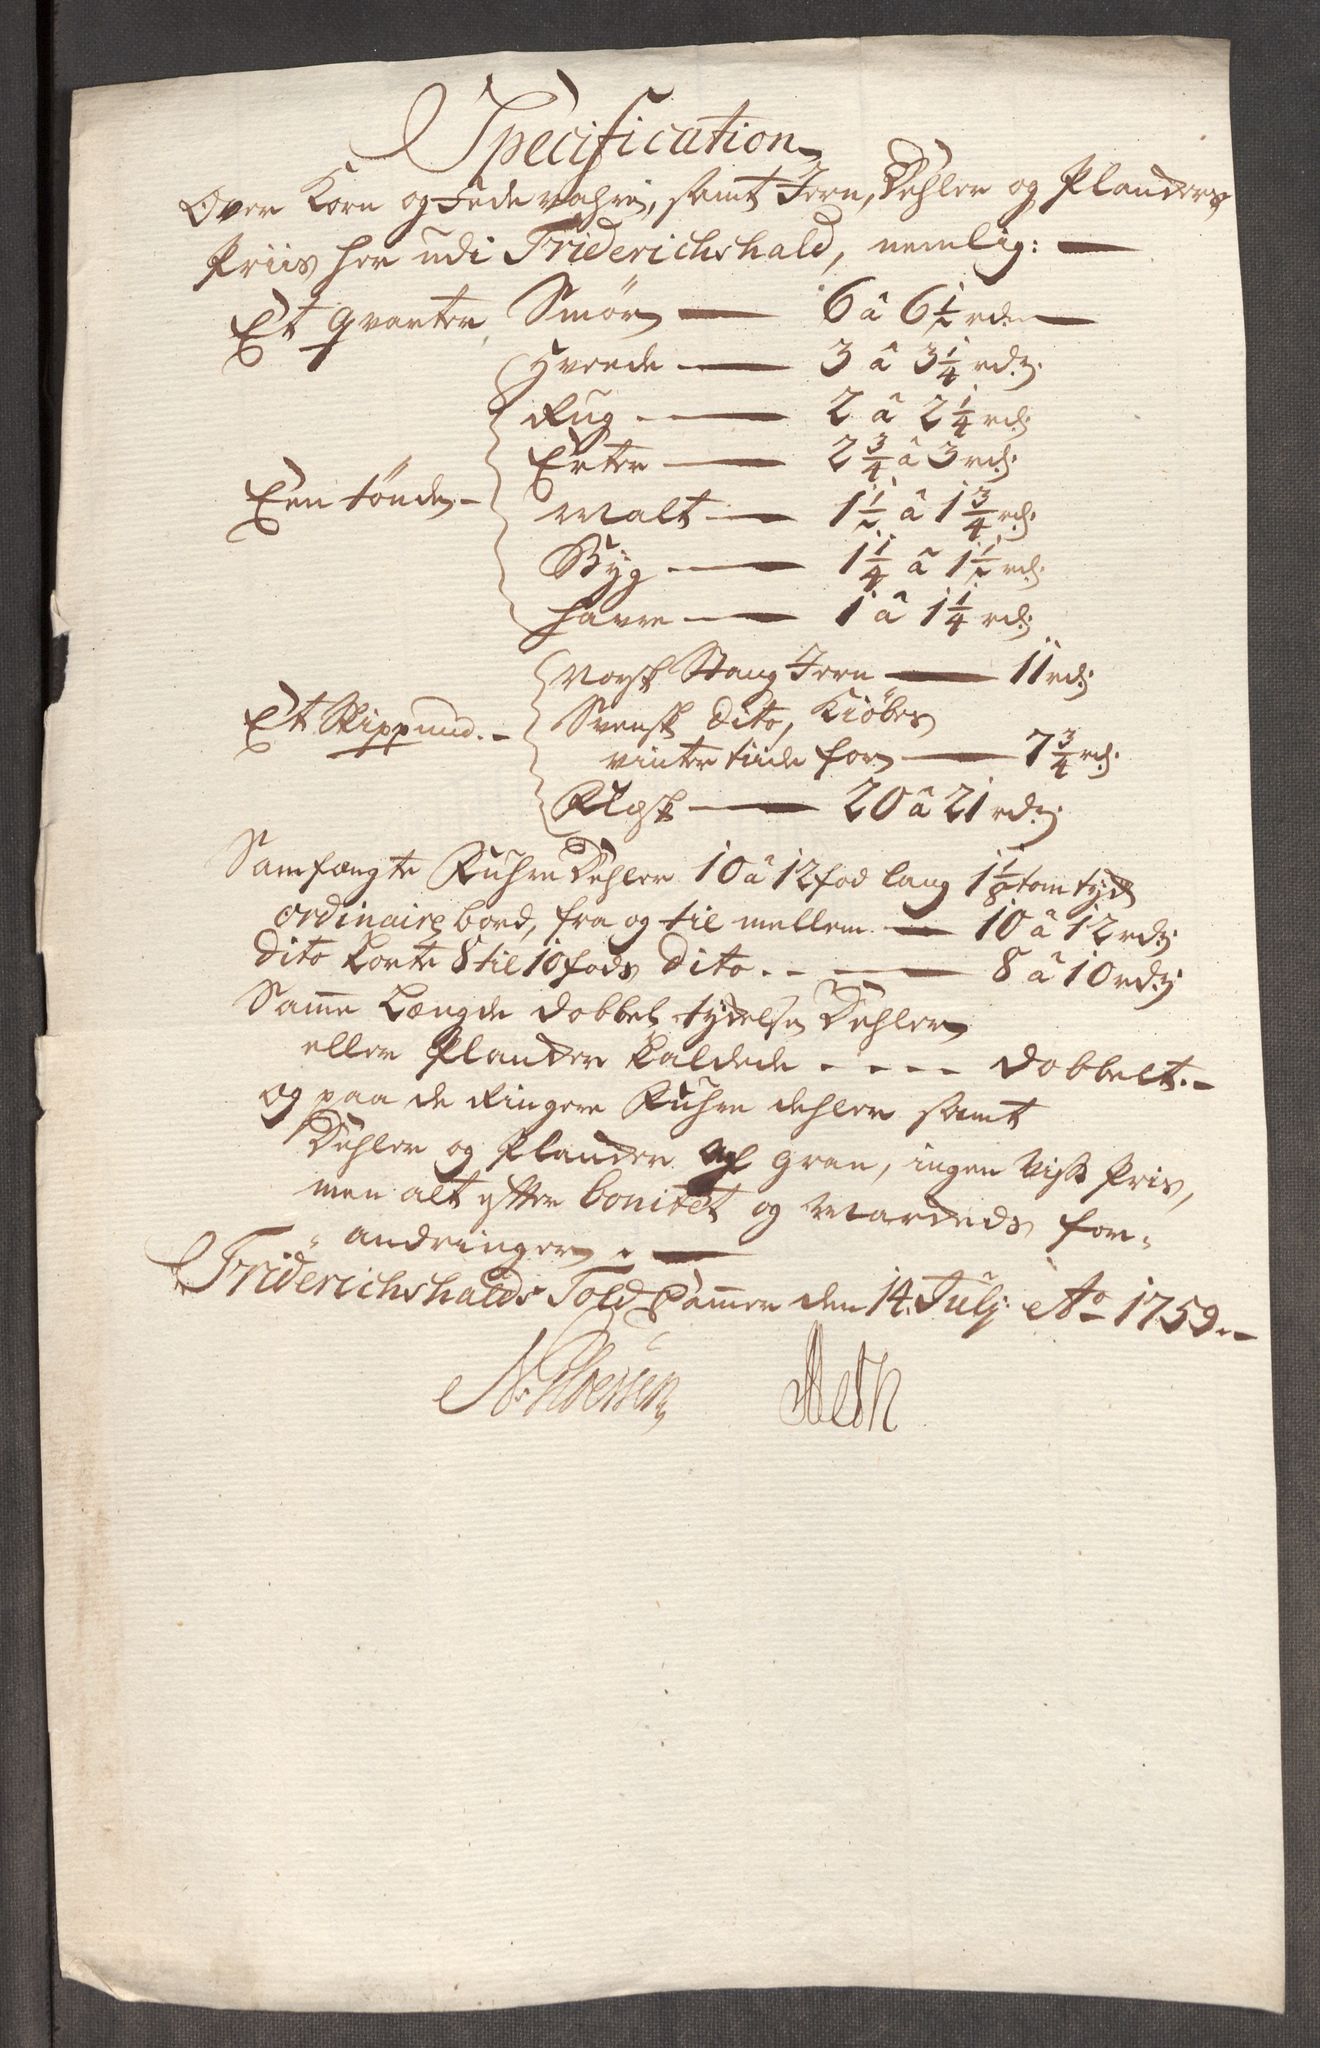 Specification
Over Korn og Fede vahre, samt Jern, Dehler og Planckers
Priis her udi Friderichshald, nemlig:
Et qvarter Smør — 6 â 6 1/2 rd.
Hvede — 3 â 3 1/4 rd.
Rug — 2 â 2 1/4 rd.
Erter — 2 3/4 â 3 rd.
Een tønde
Malt — 1 1/2 â 1 3/4 rd.
Byg — 1 1/4 â 1 1/2 rd.
Havre — 1 â 1 1/4 rd.
Norsk Stang Jern — 11 rd.
Et Skippund.
Svensk dito, Kiøbes
vinter tiide for — 7 3/4 rd.
Flesk — 20 â 21 rd.
Samfængte Fuhre Dehler 10 â 12 fod lang 1 1/8 tom tyck
ordinaire bord, fra og til mellem — 10 â 12 rd.
dito korte 8 til 10 fods dito — 8 â 10 rd.
Samme Længde dobbelt tyckelse Dehler
eller Plancker kaldede - - - - dobbelt.
og paa de Ringere Fuhre dehler samt
Dehler og Plancker af gran, ingen viss Pris,
men alt efter bonitet og Marckeds for-
andringer.
Friderichshalds Told Cammer den 14. Julj Ao 1759.